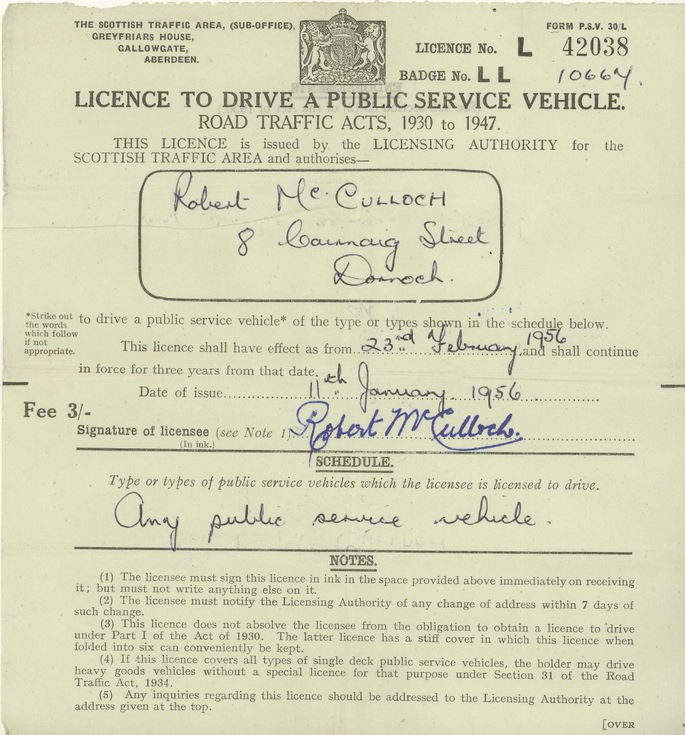 THE SCOTTISH TRAFFIC AREA, (SUB-OFFICE),
GREYFRIARS HOUSE,
GALLOWGATE,
ABERDEEN.
FORM P.S.V. 30/L
LICENCE No. L 42038
BADGE No. LL 10664
LICENCE TO DRIVE A PUBLIC SERVICE VEHICLE.
ROAD TRAFFIC ACTS, 1930 to 1947.
THIS LICENCE is issued by the LICENSING AUTHORITY for the
SCOTTISH TRAFFIC AREA and authorises—
Robert Mc. CULLOCH
8 Cairnaig Street
Dornoch.
*Strike out
the words
which follow
if not
appropriate.
to drive a public service vehicle* of the type or types shown in the schedule below.
This licence shall have effect as from 23rd February 1956 and shall continue
in force for three years from that date.
Date of issue 11th January 1956
Fee 3/-
Signature of licensee (see Note 1) Robert McCulloch.
(In ink.)
SCHEDULE.
Type or types of public service vehicles which the licensee is licensed to drive.
Any public service vehicle.
NOTES.
(1) The licensee must sign this licence in ink in the space provided above immediately on receiving
it; but must not write anything else on it.
(2) The licensee must notify the Licensing Authority of any change of address within 7 days of
such change.
(3) This licence does not absolve the licensee from the obligation to obtain a licence to drive
under Part I of the Act of 1930. The latter licence has a stiff cover in which this licence when
folded into six can conveniently be kept.
(4) If this licence covers all types of single deck public service vehicles, the holder may drive
heavy goods vehicles without a special licence for that purpose under Section 31 of the Road
Traffic Act, 1934.
(5) Any inquiries regarding this licence should be addressed to the Licensing Authority at the
address given at the top.
[OVER